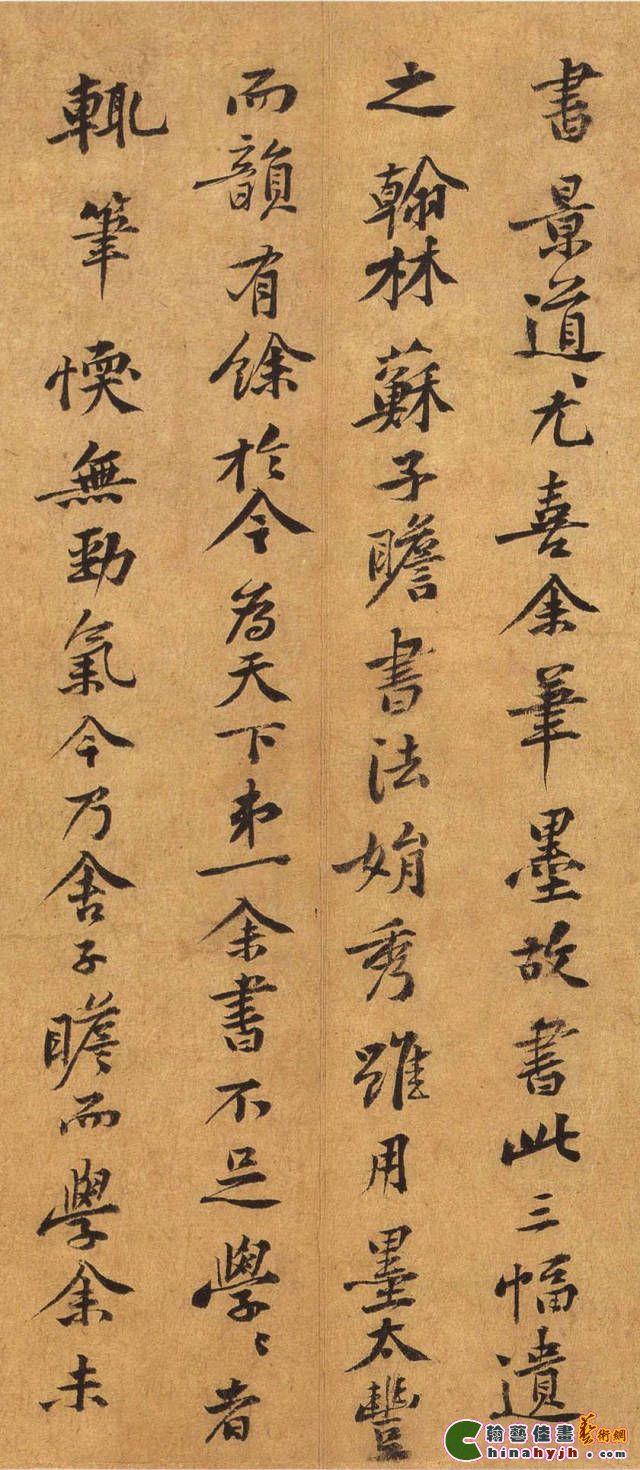 書景道〻尤喜余筆墨故書此三幅遺
之翰林蘇子瞻書法娟秀雖用墨太豐
而韻有餘於今為天下第一余書不足學〻者
輒筆愞無勁氣今乃舍子瞻而學余未
翰藝佳畫藝術網
Chinahyjh.com